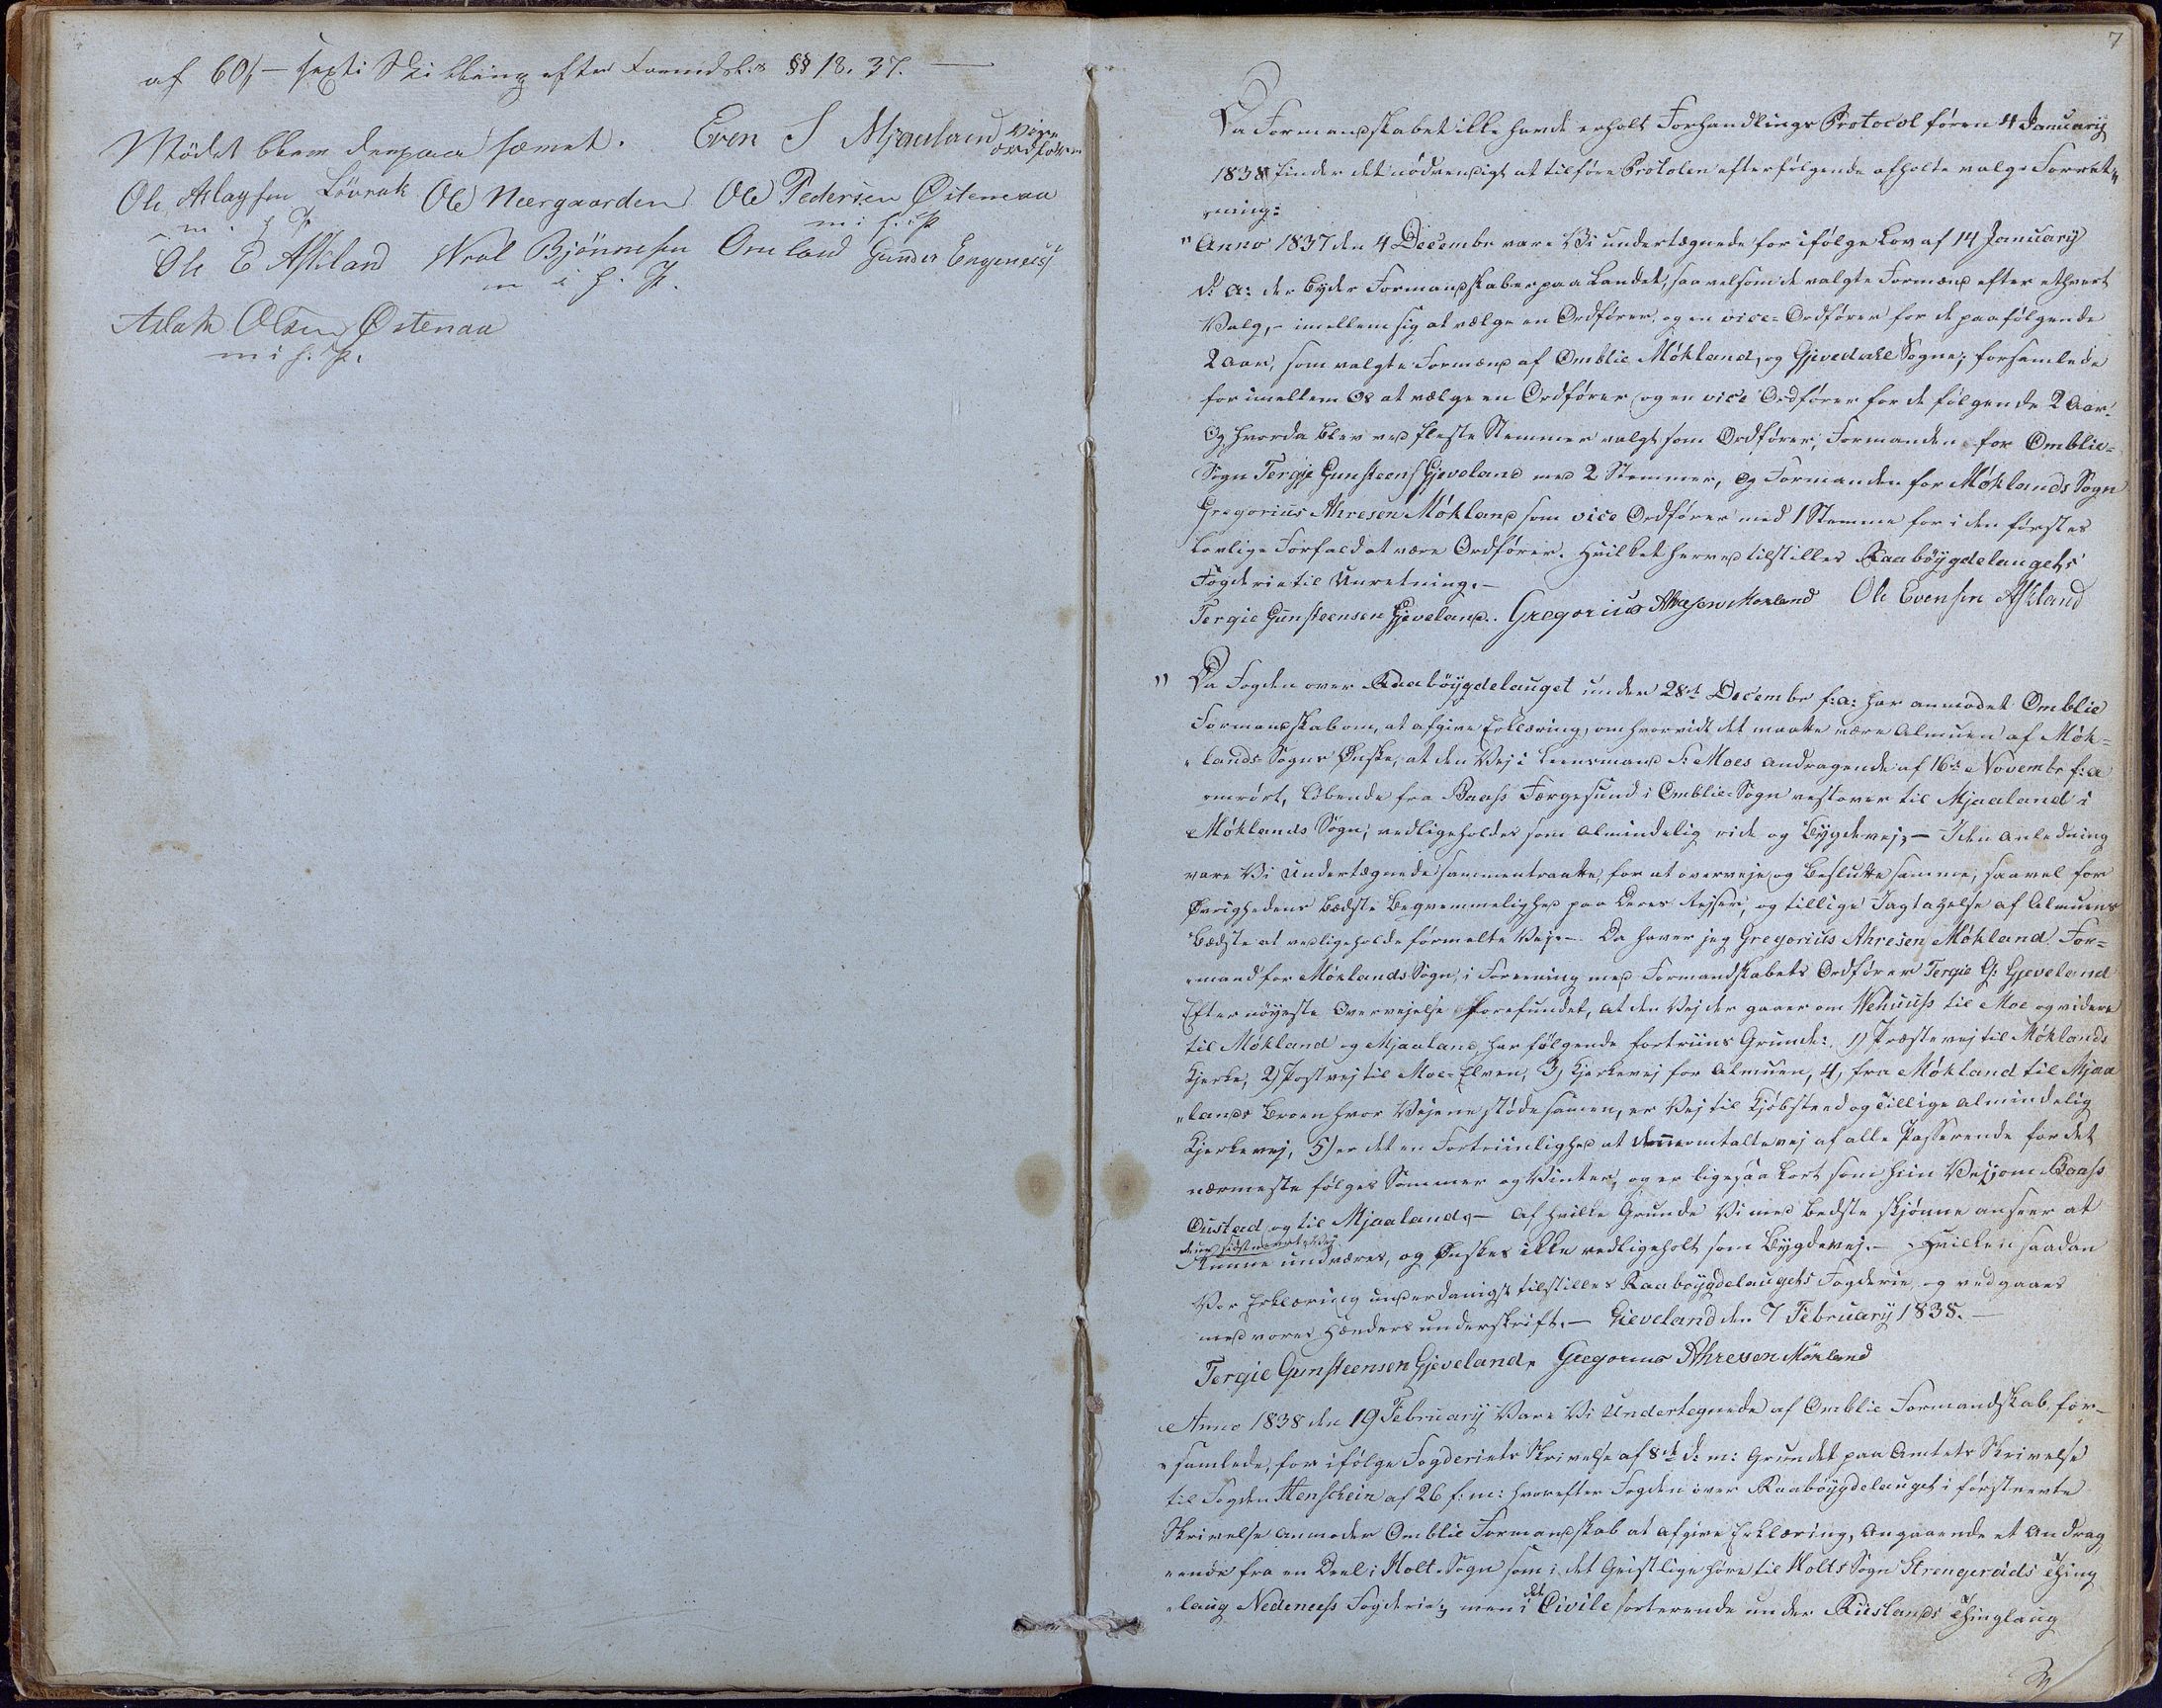 af 60 s – sexti Skilling efter Formdsk: §§ 18. 37. –
Mödet blev derpaa hævet. Even S Mjaaland Vise
ordförer
Ole Aslaysen Lövrak Ole Neergaarden Ole Pedersen Østenaa
m. i. P. m i f: P
Ole E Askland Wraal Bjönnesen Omland Gunder Engenæs
m i h. P.
Aslak Olsen Østenaa
m i h: P.
7
Da Formandskabet ikke havde erholt Forhandlings Protocol fören 4 January
1838 finder det nödvendigt at tilföre Protolen efterfölgende afholte valgs Forret„
„ning:
" Anno 1837 den 4 Decembr vare Vi undertægnede for ifölge Lov af 14 January
d: A: der byder Formandskaber paa Landet, saavelsom de valgte Formænd efter ethvert
Valg, – imellem sig at vælge en Ordförer, og en vice-Ordförer for de paafölgende
2 Aar, som valgte Formænd af Omblie Mökland, og Gjevedahl Sogne; forsamlede
for imellem os at vælge en Ordförer og en vice Ordförer for de fölgende 2 Aar.
Og hvorda blev ved fleste Stemmer valgt som Ordförer, Formanden for Omblie-
Sogn Tergje Gunsteens Gjeveland med 2 Stemmer, og Formanden for Möklands Sogn
Gregorius Ahresen Mökland som vice Ordförer med 1 Stemme for i den förstes
Lovlige Forfald at være Ordförer. Hvilket herved tilstilles Raabøygdelaugets
Fogderie til Unretning. –
Tergie Gunsteensen Gjeveland. Gregorius Ahresen Mökland Ole Evensen Askland
" Da Fogden over Raabøygdelauget under 28de Decembr f: a: har anmodet Omblie
Formandskab om, at afgive Erklæring, om hvorvidt det maatte være Almuen af Mök-
„lands Sogns Ønske, at den Vej i Lensmand S: Moes Andragende af 16de Novembr f: a
omrört, löbende fra Baass Færgesund i Omblie-Sogn vestover til Mjaaland i
Möklands Sogn, vedligeholdes som almindelig ride og Bygdevej, – I den Anledning
vare Vi Undertægnede sammentraatte, for at overveje og beslutte samme, saavel for
Øvrighedens bedste beqvemmelighed paa deres Rejser, og tillige Iagtagelse af Almuens
Bedste at vedligeholde förmelte Veje. – Da haver jeg Gregorius Ahresen Mökland. For-
„mand for Möklands Sogn, i Forening med Formandskabets Ordförer Tergie G: Gjeveland
Efter nöyeste Overvejelse forefundet, at den Vej der gaaer om Wehuuss til Moe og videre
til Mökland og Mjaaland, har fölgende fortriins Grunde: 1) Præstevej til Möklands
Kjerke, 2) Postvej til Moe-Elven, 3, Kjerkevej for Almuen, 4, fra Mökland til Mjaa
„lands broen hvor Vejene stöde samen, er Vej til Kjöbsted og tillige almindelig
Kjerkevej, 5) er det en Fortriinlighed at denne omtalte vej af alle Passerende for det
nærmeste fölges Sommer og Vinter, og er ligesaa kort som hiin Vej om Baass
Oustad og til Mjaaland. – Af hvilke Grunde Vi med bedste skjönne anseer at
den sidstnævnte Vej
Kunne undværes, og Önskes ikke vedligeholt som Bygdevej. – Hvilken saadan
Vor Erklæring underdanigst tilstilles Raabøygdelaugets Fogderie og vedgaaes
med vores Hænders underskrift. – Gieveland den 7 February 1838. –
Tergie Gunsteensen Gjeveland, Gregorius Ahresen Mökland
Anno 1838 den 19 February Vare Vi Undertegnede af Omblie Formandskab for-
„samlede, for ifölge Fogderiets Skrivelse af 8de d: m: Grundet paa Amtets Skrivelse
til Fogden Henschein af 26 f: m: hvorefter Fogden over Raabøygdelauget i förstnevte
Skrivelse anmoder Omblie Formandskab at afgive Erklæring, Angaaende et Andrag
„ende fra en Deel i Holt-Sogn som i det Geistlige höre til Holts Sogn Strengereids Thing
„laug Nedeness Fogderie, men i det Civile sorterende under Riislands Thinglaug